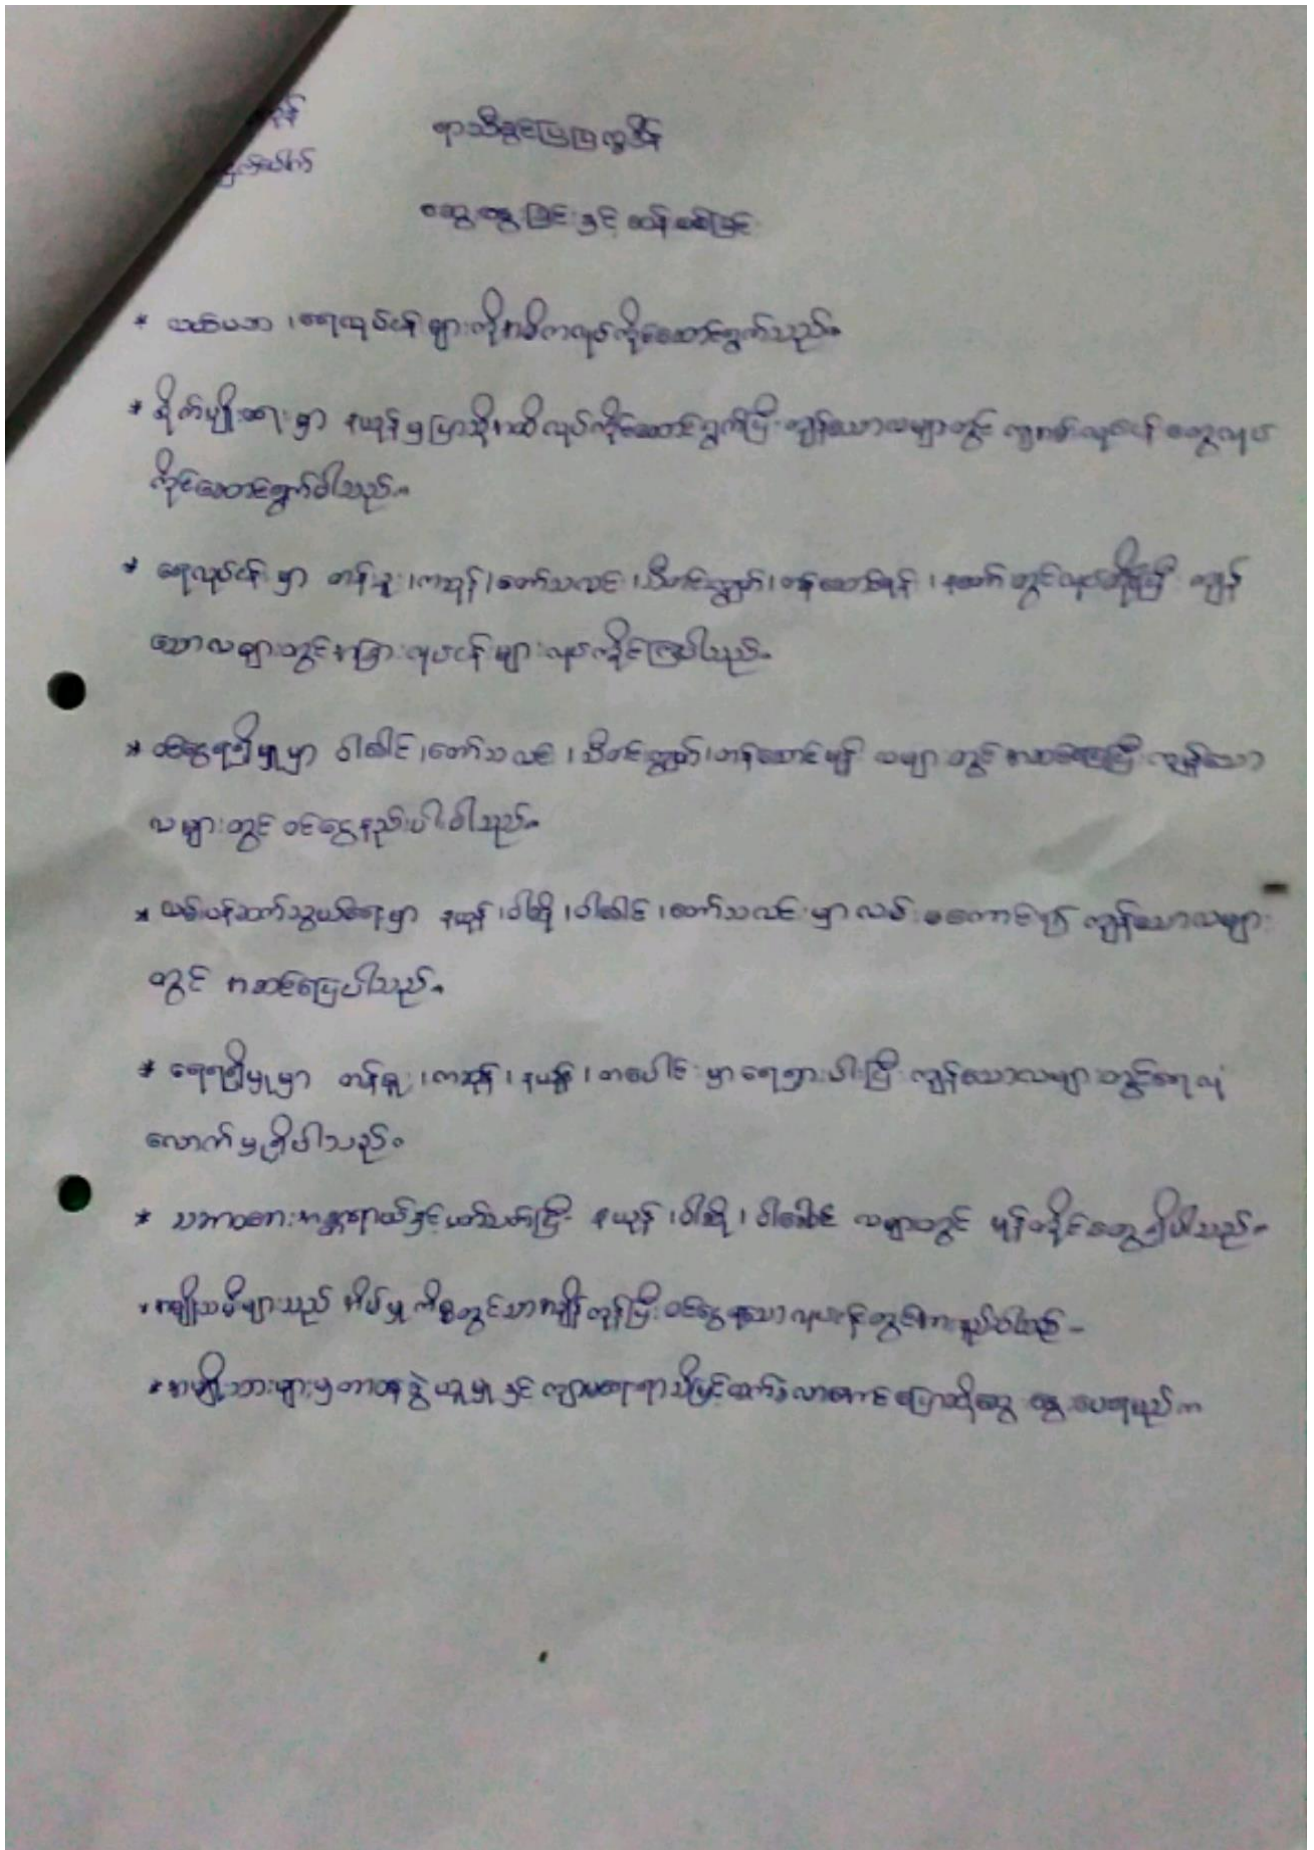 ရာသီခွင်ပြပြက္ခဒိန်
ဆွေးနွေးခြင်းနှင့် ဆန်းစစ်ခြင်း
* ယာ၊ ရေလုပ်ငန်းများကိုအဓိကလုပ်ကိုင်ဆောင်ရွက်သည်။
* စိုက်ပျိုးရေးမှာ နယုန်မှပြာသိုအထိလုပ်ကိုင်ဆောင်ရွက်ပြီးကျန်သောလများတွင် ကျပန်းလုပ်ငန်းတွေလုပ်
ကိုင်ဆောင်ရွက်ပါသည်။
* ရေလုပ်ငန်းမှာ တန်ခူး၊ကဆုန်၊တော်သလင်း၊သီတင်းကျွတ်၊တန်ဆောင်မုန်း၊နတ်တော်တွင်လုပ်ကိုင်ပြီး ကျန်
သောလများတွင်အခြားလုပ်ငန်းများလုပ်ကိုင်ကြပါသည်။
* ဝင်ငွေရရှိမှုမှာ ဝါခေါင်၊တော်သလင်း၊သီတင်းကျွတ်၊တန်ဆောင်မုန်း လများတွင် အဆင်ပြေပြီးကျန်သော
လများတွင် ဝင်ငွေနည်းပါးပါသည်။
* လမ်းပန်းဆက်သွယ်ရေးမှာ နယုန်၊ဝါဆို၊ဝါခေါင်၊တော်သလင်းမှာလမ်းမကောင်း၍ ကျန်သောလများ
တွင် အဆင်ပြေပါသည်။
* ရေရရှိမှုမှာ တန်ခူး၊ကဆုန်၊နယုန်၊တပေါင်းမှာရေရှားပါးပြီး ကျန်သောလများတွင်ရေလုံ
လောက်မှုရှိပါသည်။
* သဘာဝဘေးအန္တရာယ်နှင့်ပတ်သက်ပြီး နယုန်၊ဝါဆို၊ဝါခေါင် လများတွင် မုန်တိုင်းတွေရှိပါသည်။
* အမျိုးသမီးများသည် အိမ်မှုကိစ္စတွင်သာအချိန်ကုန်ပြီးဝင်ငွေရသောလုပ်ငန်းတွင်အားနည်းပါသည်။
* အမျိုးသားများမှတာဝန်ခွဲယူမှုနှင့် ကျားမရေးရာမြှင့်တက်လာအောင်ပြောဆိုဆွေးနွေးပေးရမည်။